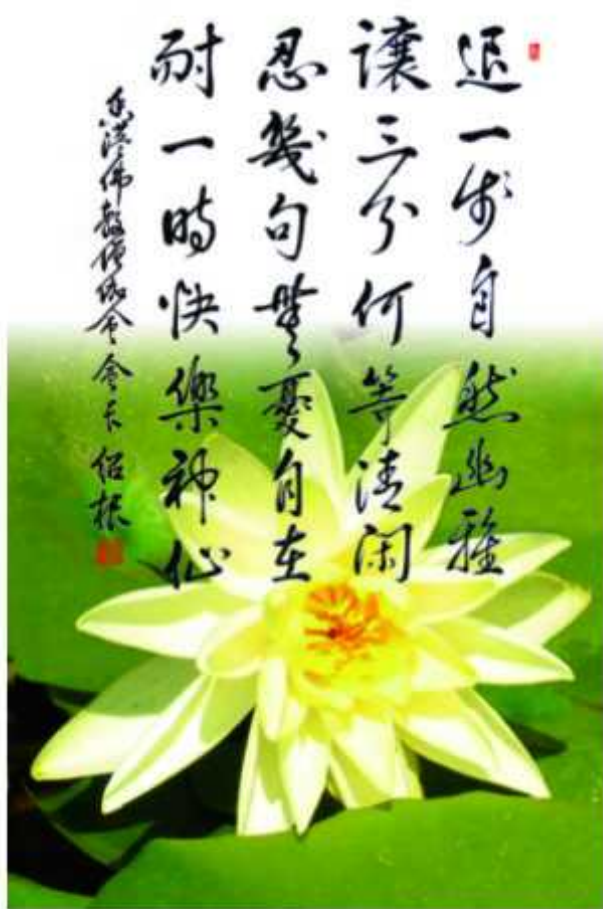 退一步自然幽雅
讓三分何等清閑
忍幾句無憂自在
耐一時快樂神仙
香港佛教僧伽會會長 紹根